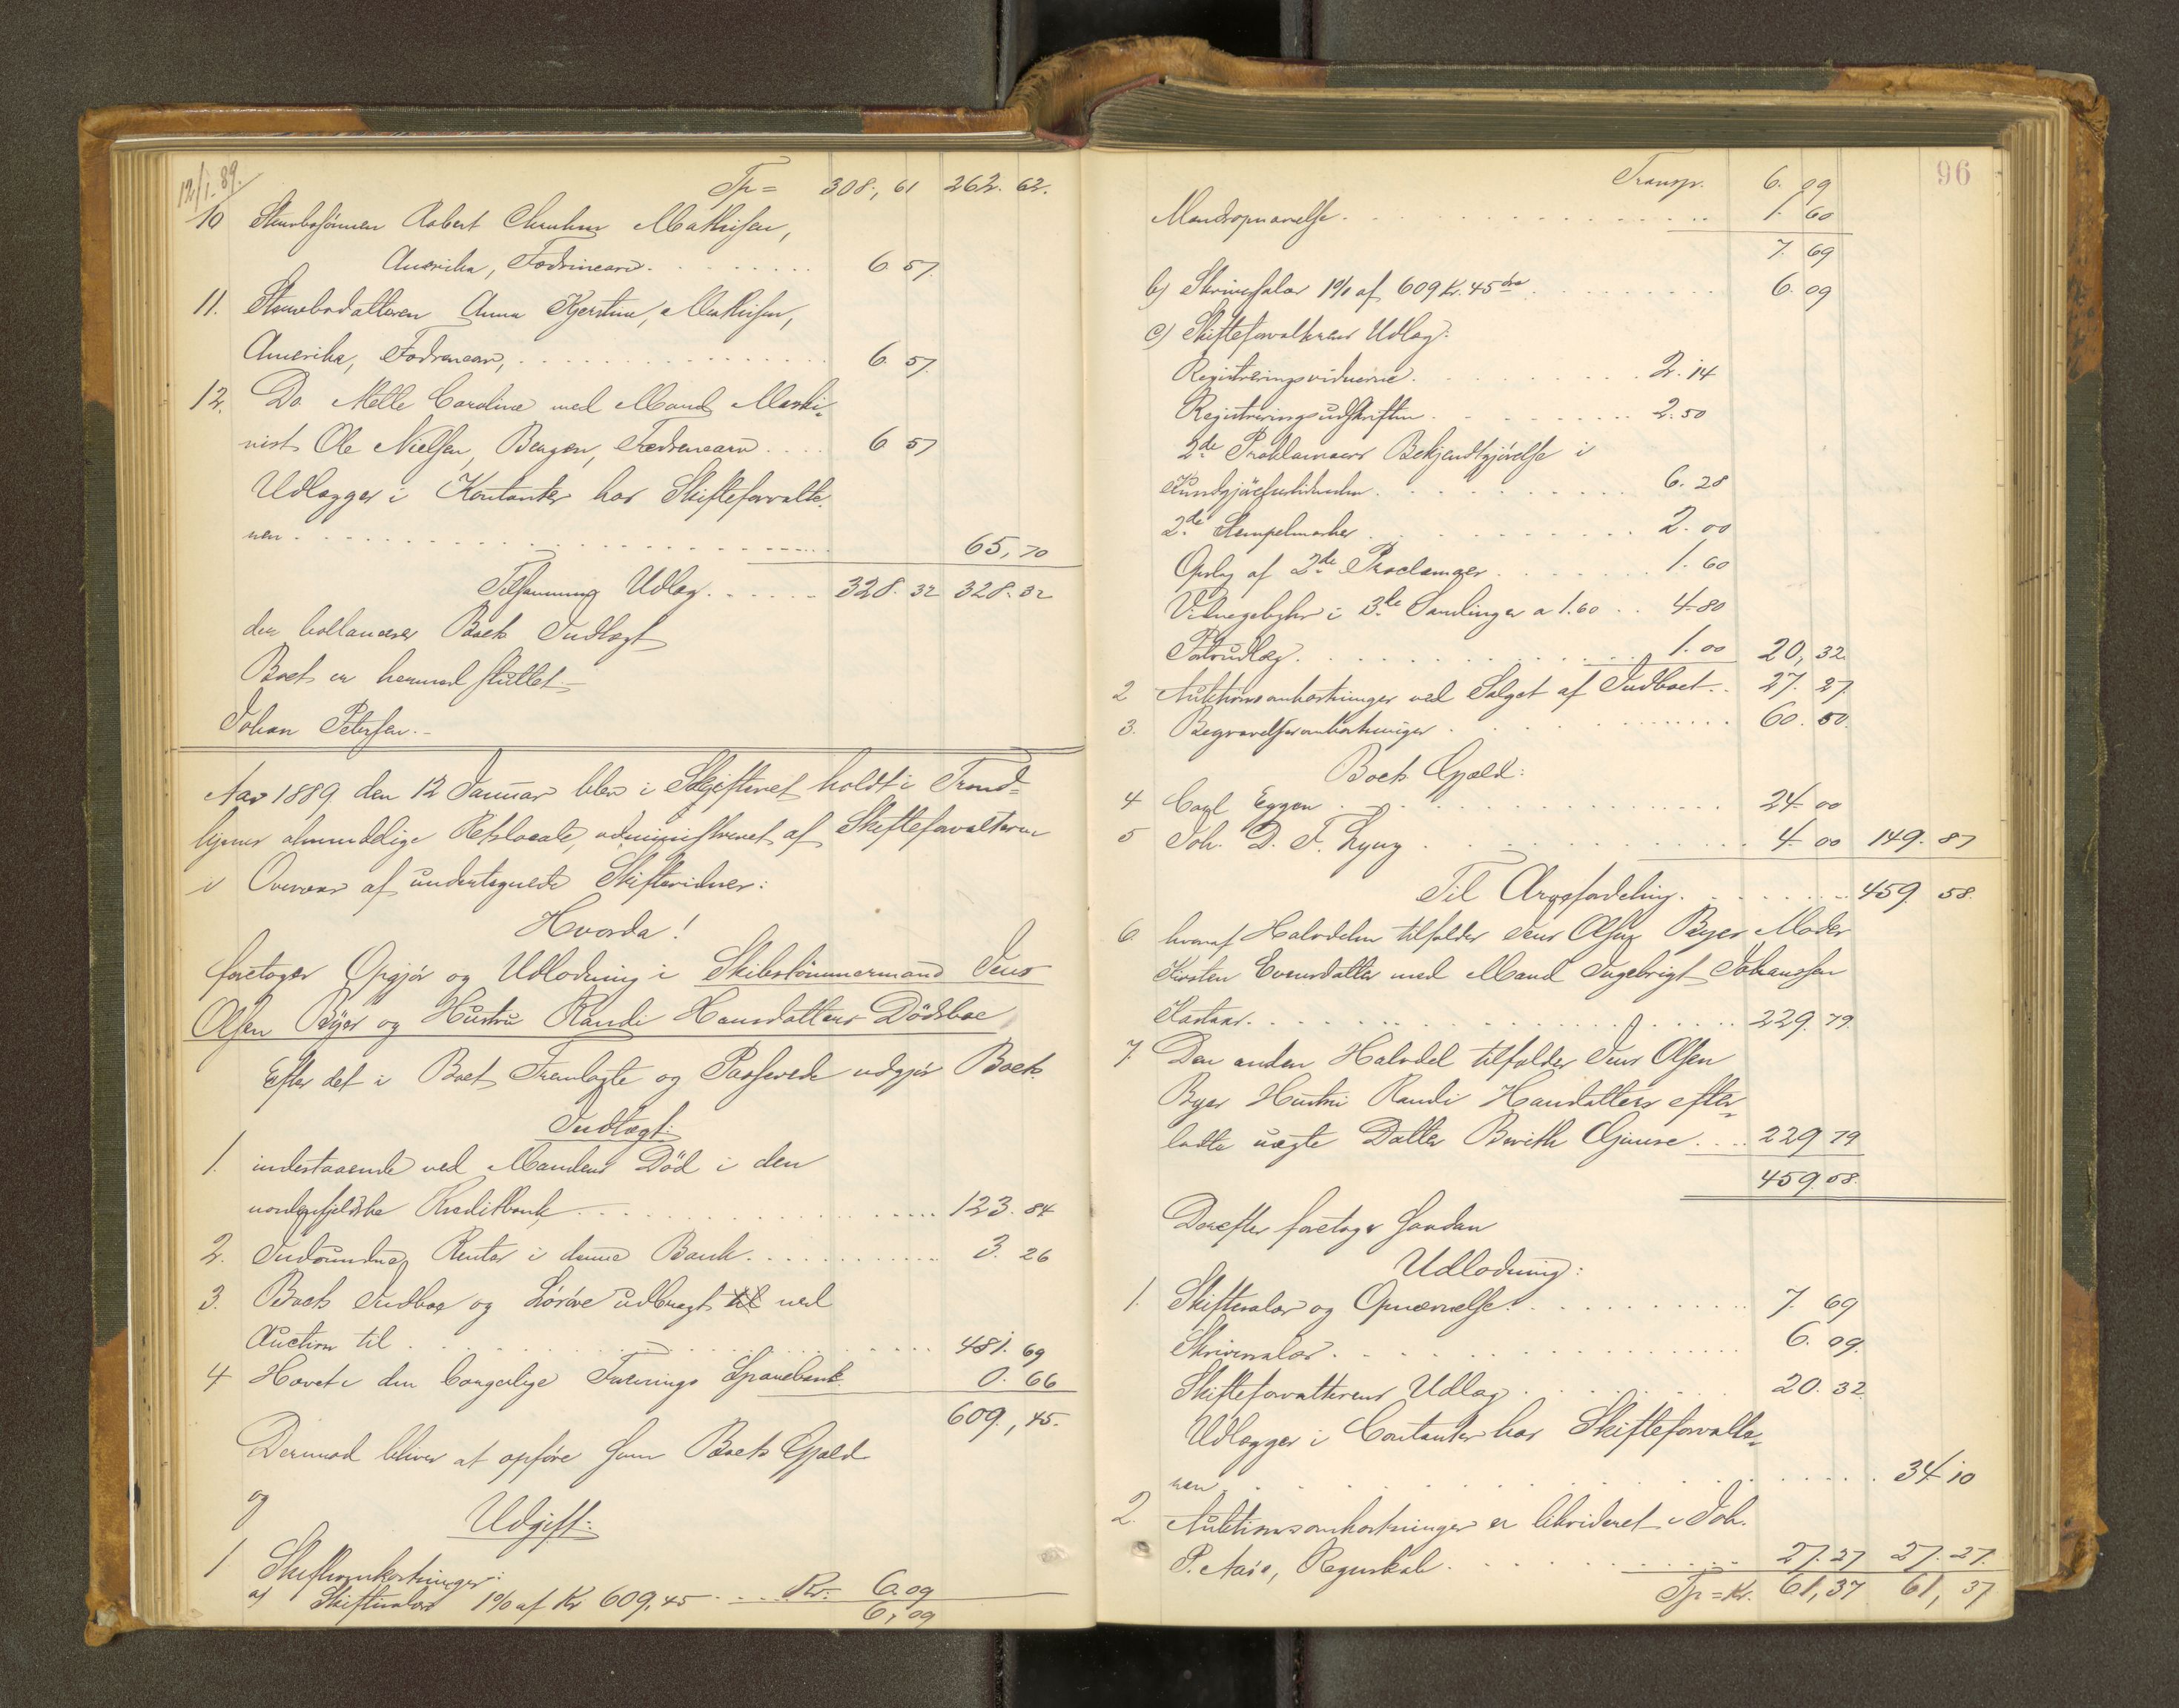 12/1. 89.
Tp = 308,, 61 262. 62.
10 Stervbosønnen Robert Mathisen,
Amerika, Fædrenearv. 6 57.
11. Stervbodatteren Anna Kjerstine Mathisen,
Amerika, Fædrenearv, 6. 57.
12. Do. Mette Caroline med Mand Maski-
nist Ole Nielsen, Bergen, Fædrenearv 6 57
Udlægger i Kontanter har Skifteforvalte-
ren 65, 70
Tilsammen Udlæg 328. 32 328. 32
der ballancerer Boets Indtægt
Boet er hermed sluttet.
Johan Petersen.
Aar 1889 den 12 Januar blev i Skifteret holdt i Trond-
hjems almindelige Retslocale, administreret af Skifteforvalteren
i Overvær af undertegnede Skiftevidner:
Hvorda!
foretoges Opgjør og Udlodning i Skibstømmermand Jens
Olsen Byer og Hustru Randi Hansdatters Dødsboe
Efter det i Boet Fremlagte og Passerede udgjør Boets
Indtægt:
1. indestaaende ved Mandens Død i den
nordenfjeldske Kreditbank 123. 84
2. Indvundne Renter i denne Bank 3. 26
3. Boets Indboe og Løsøre udbragt til ved
Auction til 481. 69
4 Hævet i den borgerlige Sparebank 0. 66
609,, 45.
Dermod bliver at opføre som Boets Gjæld
og
Udgift:
1 Skifteomkostninger:
a) Skiftesalær 1% af Kr 609,45 Kr. 6.09
6,09
96
Transp. 6. 09
Mandsopnævnelse 1. 60
7. 69
b) Skriversalær 1% af 609 Kr. 45 Øre 6. 09
c) Skifteforvalterens Udlæg:
Registreringsvidnerne 2. 14
Registreringsudskriften 2. 50
2de Proklamaers Bekjendtgjørelse i
Kundgjørelsestidenden 6. 28
2de Stempelmærker 2. 00
Opslag af 2de Proclamaer 1. 60
Vidnegebyhr i 3de Samlinger a 1.60 4.80
Portoudlæg 1. 00 20, 32.
2 Auktionsomkostninger ved Salget af Indboet 27. 27.
3. Begravelsesomkostninger 60. 50.
Boets Gjæld:
4 Carl Eggen 24. 00
5 Joh. D. F. Lyng 4. 00 149. 87
Til Arvefordeling 459. 58.
6. hvoraf Halvdelen tilfalder Jens Olsen Byes Moder
Kirsten Evensdatter med Mand Ingebrigt Johanssen
229. 79.
7. Den anden Halvdel tilfalder Jens Olsen
Byes Hustru Randi Hansdatters efter-
ladte uægte Datter Berith Gimse 229 79
459.58.
Derefter foretoges saadan
Udlodning:
1. Skiftesalær og Opnævnelse 7. 69
Skriversalær 6. 09.
Skifteforvalterens Udlæg 20. 32.
Udlægger i Contanter har Skifteforvalte-
ren 34. 10
2. Auktionsomkostninger er likvideret i Joh.
P. Aaie, Regnskab 27. 27 27. 27.
Tp = Kr. 61, 37 61, 37